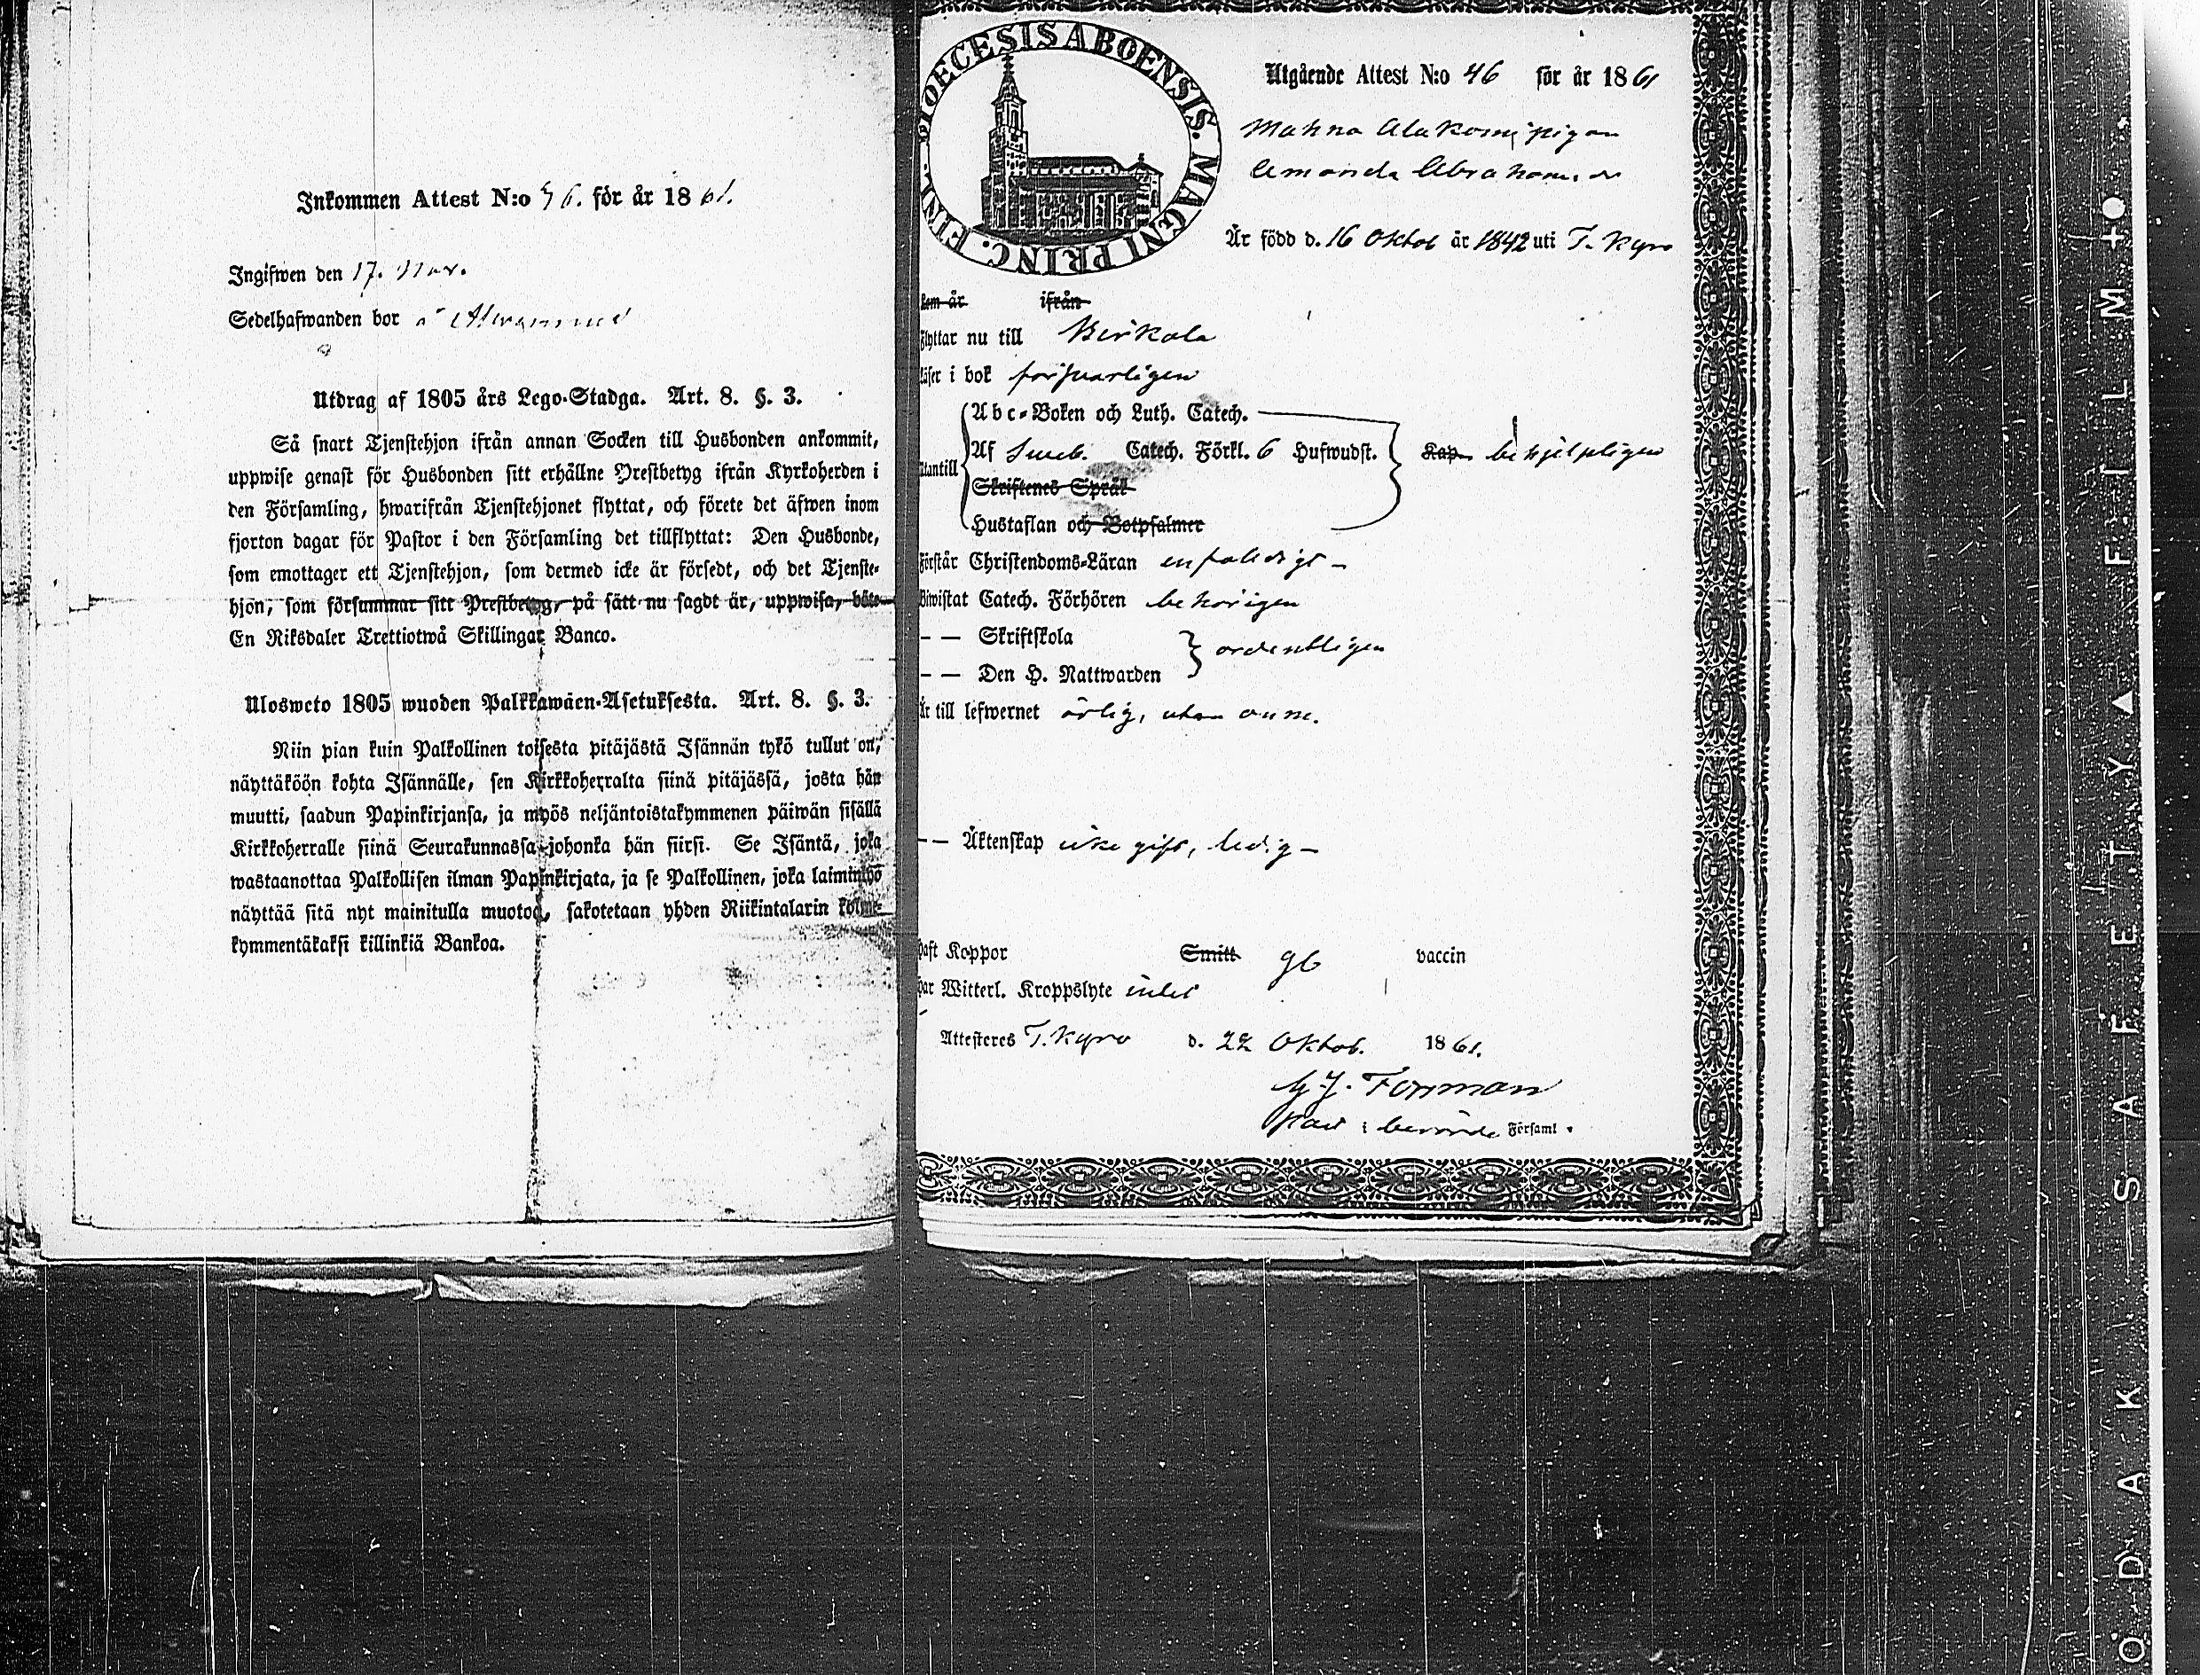 Inkommen Attest N:o 46. för år 1861.
Ingifwen den 17. Nov.
Sedelhafwanden bor å
Utdrag af 1805 års Lego-Stadga. Art. 8. §. 3.
Så snart Tjenstehjon ifrån annan Socken till Husbonden ankommit,
uppwise genast för Husbonden sitt erhållne Prestbetyg ifrån Kyrkoherden i
den Församling, hwarifrån Tjenstehjonet flyttat, och förete det äfwen inom
fjorton dagar för Pastor i den Församling det tillflyttat: Den Husbonde,
som emottager ett Tjenstehjon, som dermed icke är försedt, och det Tjenste-
hjon, som försummar sitt Prestbetyg, på sätt nu sagdt är, uppwisa, böte
En Riksdaler Trettiotwå Skillingar Banco.
Ulosweto 1805 wuoden Palkkawäen-Asetuksesta. Art. 8. §. 3.
Niin pian kuin Palkollinen toisesta pitäjästä Isännän tykö tullut on,
näyttäköön kohta Isännälle, sen Kirkkoherralta siinä pitäjässä, josta hän
muutti, saadun Papinkirjansa, ja myös neljäntoistakymmenen päiwän sisällä
Kirkkoherralle siinä Seurakunnassa johonka hän siirsi. Se Isäntä, joka
wastaanottaa Palkollisen ilman Papinkirjata, ja se Palkollinen, joka laiminlyö
näyttää sitä nyt mainitulla muotoa, sakotetaan yhden Riikintalarin kolme-
kymmentäkaksi killinkiä Bankoa.
DIOECESIS ABOENSIS. MAGNI PRINC. FINL.
Utgående Attest N:o 46 för år 1861
Mahna Alakomi pigan
Amanda Abrahams dr
Är född d. 16 Oktob år 1842 uti T. Kyro
kom år ifrån
flyttar nu till Birkala
läser i bok försvarligen
Abc-Boken och Luth. Catech.
Utantill Af Sweb. Catech. Förkl. 6 Hufwudst. Kap. behjelpligen
Skriftenes Språk
Hustaflan och Botpsalmer
Förstår Christendoms-Läran enfaldigt –
Biwistat Catech. Förhören behörigen
– – Skriftskola
ordentligen
– – Den H. Nattwarden
Är till lefwernet ärlig, utan anm.
– – Äktenskap icke gift, ledig –
haft Koppor Smitt gb vaccin
har Witterl. Kroppslyte intet
Attesteres T. Kyro d. 22 Oktob. 1861.
G. J. Forsman
Past i berörde Församl.
SAFETY ▲ FILM +●
ODAK